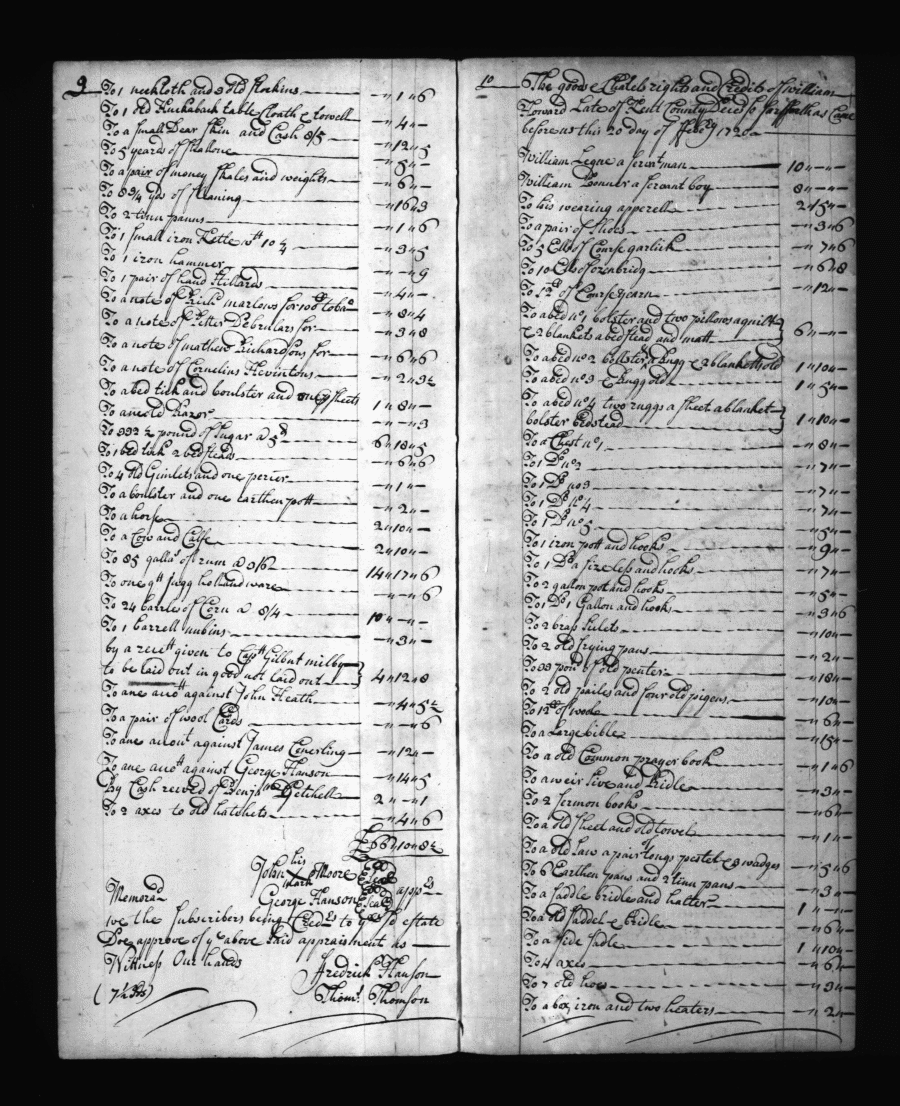 9
To 1 neckloth and 3 old stockins " 1 " 6
To 1 old Huckaback table Cloath & towell " 4 " -
To a small Dear skin and Cash 8/5 " 12 " 5
To 5 yeards of Shallone " 5 " -
To a pair of money skales and weights " 6 " -
To 8 3/4 yds of " 16 " 3
To 2 tinn panns " 1 " 6
To 1 small iron Kettle wtt 10 " 3 " 5
To 1 iron hammer " - " 9
To 1 pair of hand " 4 " -
To a note of Rich: marlows for 100 tobo " 8 " 4
To a note of Petter Debrulars for " 3 " 8
To a note of mathew Richardsons for " 6 " 6
To a note of Cornelius Heverintons " 2 " 3
To a bed tick and boulster and sheets 1 " 8 " -
To a Razor " - " 3
To 332 1/2 pound of Sugar a 5d 6 " 18 " 5
To 1 bed tick 2 bedsteads " 6 " 6
To 4 old Gimlets and one " 1 " -
To a boulster and one Earthen pott " 2 " -
To a horse 2 " 10 " -
To a Cow and Calfe 2 " 10 " -
To 85 gallos of rum a 3/6 14 " 17 " 6
To one qtt jugg holland ware " - " 6
To 24 barrls of Corn a 8/4 10 " - " -
To 1 barrell nubins " 3 " -
by a receitt given to Captt Gilbut milby
to be laid out in good not laid out 4 " 12 " 8
To one accott against John Heath " 4 " 5
To a pair of wool Cards " - " 6
To one accott against James Conerling " 12 " -
To one accott against George Hanson " 14 " 5
By Cash receved of Benja Getchell 2 " - " 1
To 2 axes to old hatchets " 4 " 6
£ 66 " 10 " 8
his
John X Moore Seal
mark
Memorad George Hanson Seal apprs
we the Subscribers being Credrs to ye sd estate
Doe approve of ye above said appraisment as
Wittness Our hands
Fredrick Hanson
(7 1/2 Sds) Thoms. Thomson
10
The goods & Chatels rights and Credits of William
Howard Late of Kent County Deced so far forth as Came
before us this 20 day of Febry 1720
William Legue a servtt man 10 " - " -
William a servant boy 8 " - " -
To his wearing apperell 2 " 15 " -
To a pair of Shoes " 3 " 6
To 5 Ells of Course garlick " 7 " 6
To 10 Ells of ozenbridg " 6 " 8
To 12 of Course yearn " 12 " -
To a bed no 1 bolster and two pillows a quilt
& 2 blankets a bedstead and matt 6 " - " -
To a bed no 2 bollster a Rugg & 2 blankets old 1 " 10 " -
To a bed no 3 & Rugg old 1 " 5 " -
To a bed no 4 two ruggs a sheet a blanket
bolster bedstead 1 " 10 " -
To a Chest no 1 " 8 " -
To 1 Do no 2 " 7 " -
To 1 Do no 3 " 7 " -
To 1 Do no 4 " 7 " -
To 1 Do no 5 " 5 " -
To 1 iron pott and hooks " 9 " -
To 1 Do a size less and hooks " 7 " -
To 2 gallon pot and hooks " 5 " -
To 1 Do 1 Gallon and hooks " 3 " 6
To 2 brass " 10 " -
To 2 old frying pans " 2 " -
To 33 pond of old peuter " 18 " -
To 2 old pailes and four old pigens " 10 " -
To 12 of woole " 6 " -
To a Large bible " 5 " -
To a old Common prayer book " 1 " 6
To a weir sive and Ridle " 3 " -
To 2 sermon books " 6 " -
To a old sheet and old towel " 1 " -
To a old saw a pair tongs pestel & 3 wadges " 5 " 6
To 6 Earthen pans and 2 tinn pans " 3 " -
To a saddle bridle and halter 1 " - " -
To a old saddel & bridle " 6 " -
To a side sadle 1 " 10 " -
To 4 axes " 6 " -
To 7 old hoes " 3 " -
To a box iron and two heaters " 2 " -